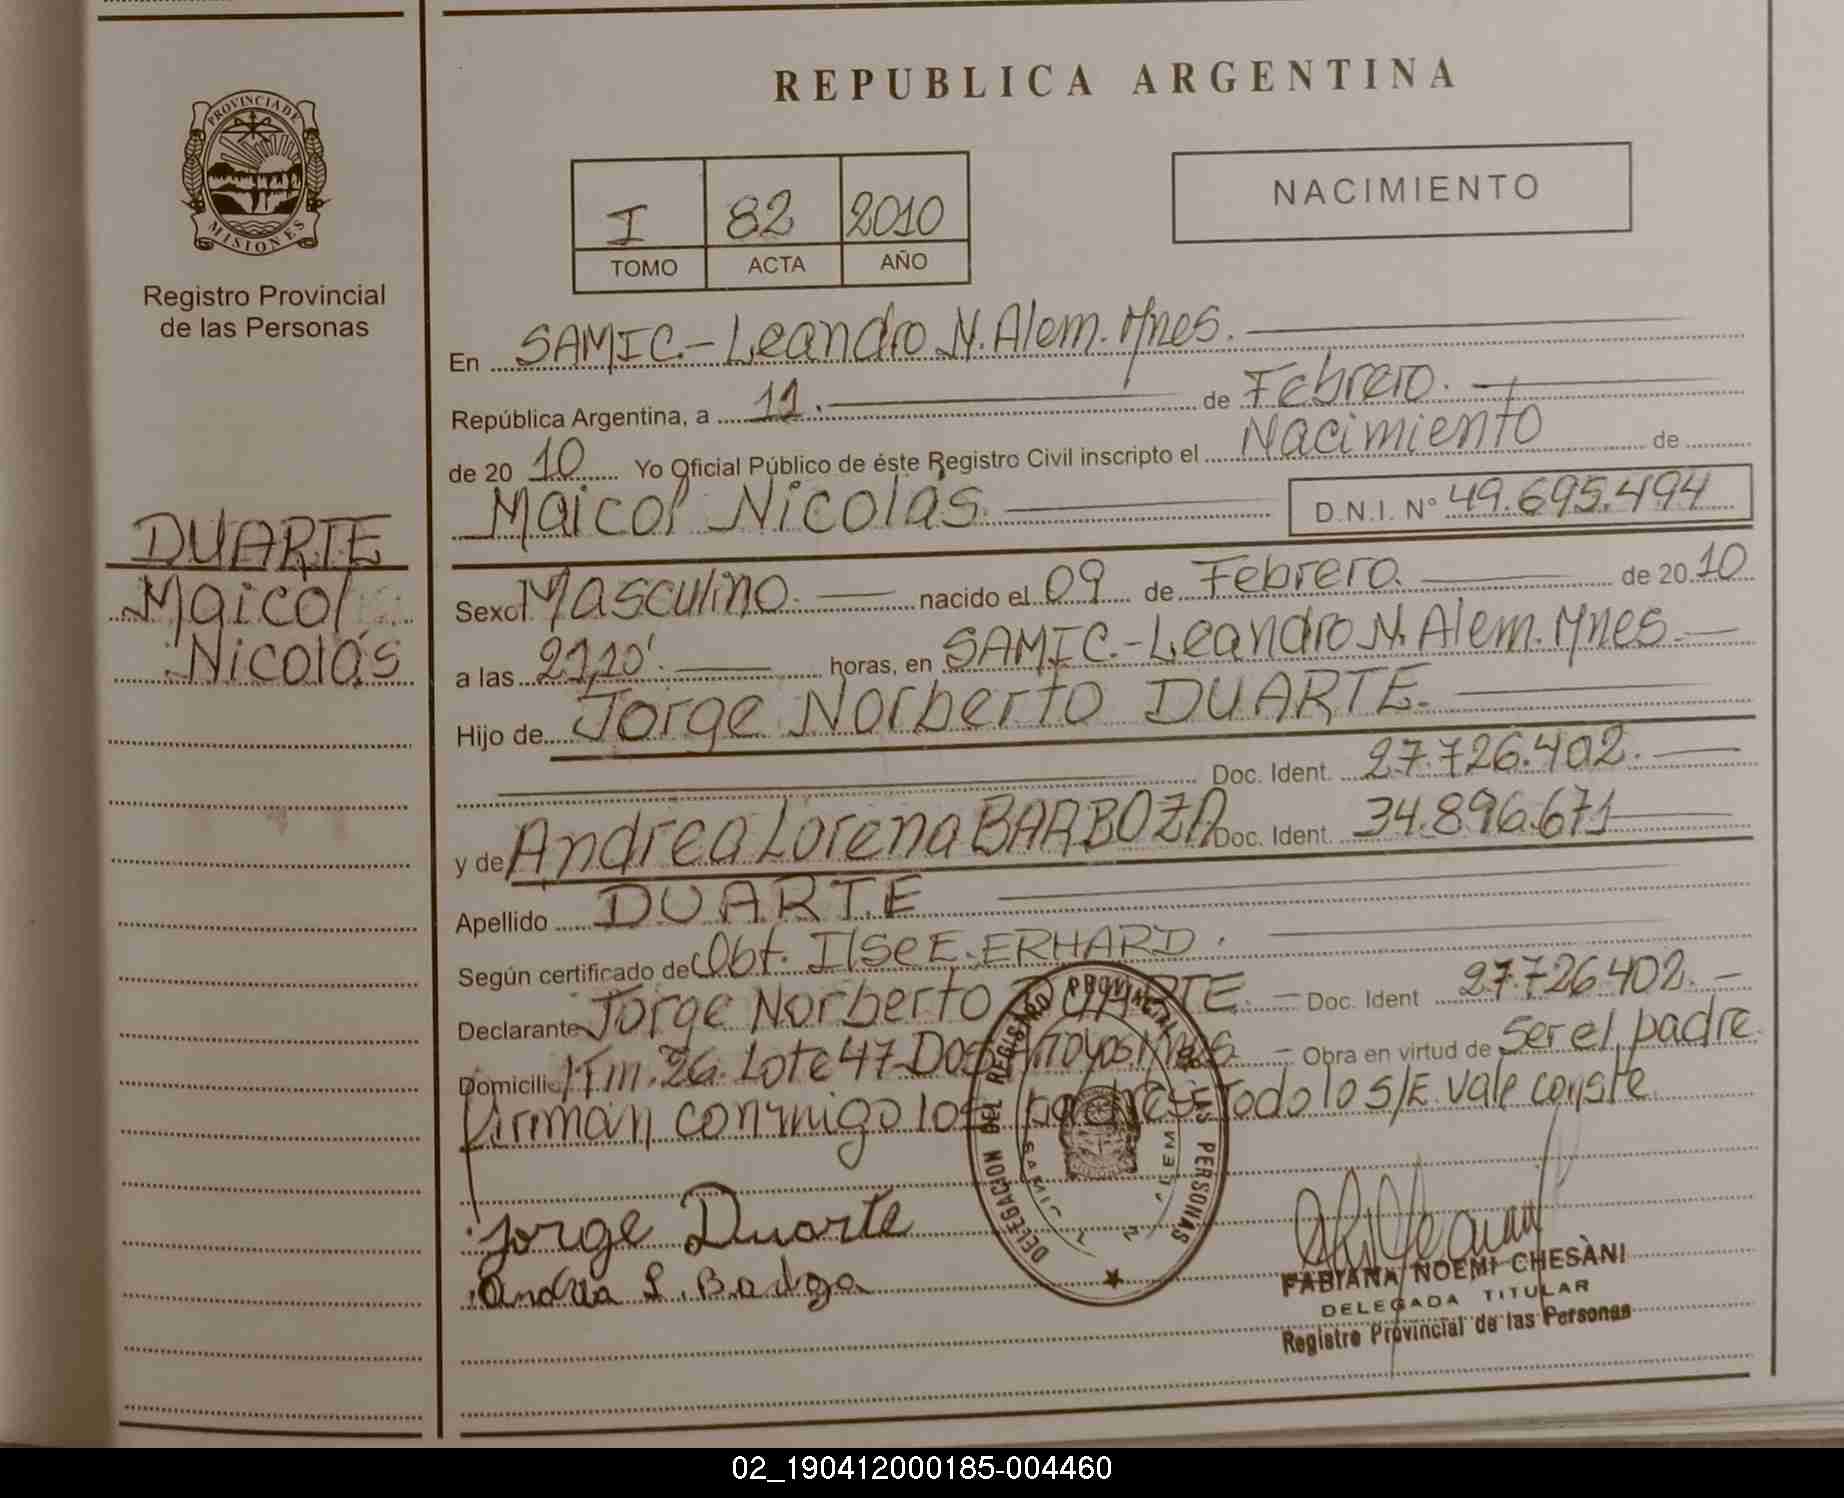 PROVINCIA DE
MISIONES
Registro Provincial
de las Personas
DUARTE
Maicol
Nicolás
REPUBLICA ARGENTINA
I 82 2010
TOMO ACTA AÑO
NACIMIENTO
En SAMIC.-Leandro N. Alem. Mnes.
República Argentina, a 11. de Febrero.
de 20 10 Yo Oficial Público de éste Registro Civil inscripto el Nacimiento de
Maicol Nicolás. D.N.I. Nº 49.695.494
Sexo Masculino. nacido el 09 de Febrero. de 20 10
a las 21,10'. horas, en SAMIC.-Leandro N. Alem. Mnes.
Hijo de Jorge Norberto DUARTE.
Doc. Ident. 27.726.402.
y de Andrea Lorena BARBOZA Doc. Ident. 34.896.671
Apellido DUARTE
Según certificado de Obt. Ilse E. ERHARD.
Declarante Jorge Norberto DUARTE. Doc. Ident 27.726.402.
Domicilio Km. 26. Lote 47-Dos Arroyos. Mnes. Obra en virtud de ser el padre
Firman conmigo los padres. Todo lo S/E. vale conste.
DELEGACION DEL REGISTRO PROVINCIAL LAS PERSONAS
Jorge Duarte
Andrea L. Barboza
FABIANA NOEMI CHESÀNI
DELEGADA TITULAR
Registro Provincial de las Personas
02_190412000185-004460